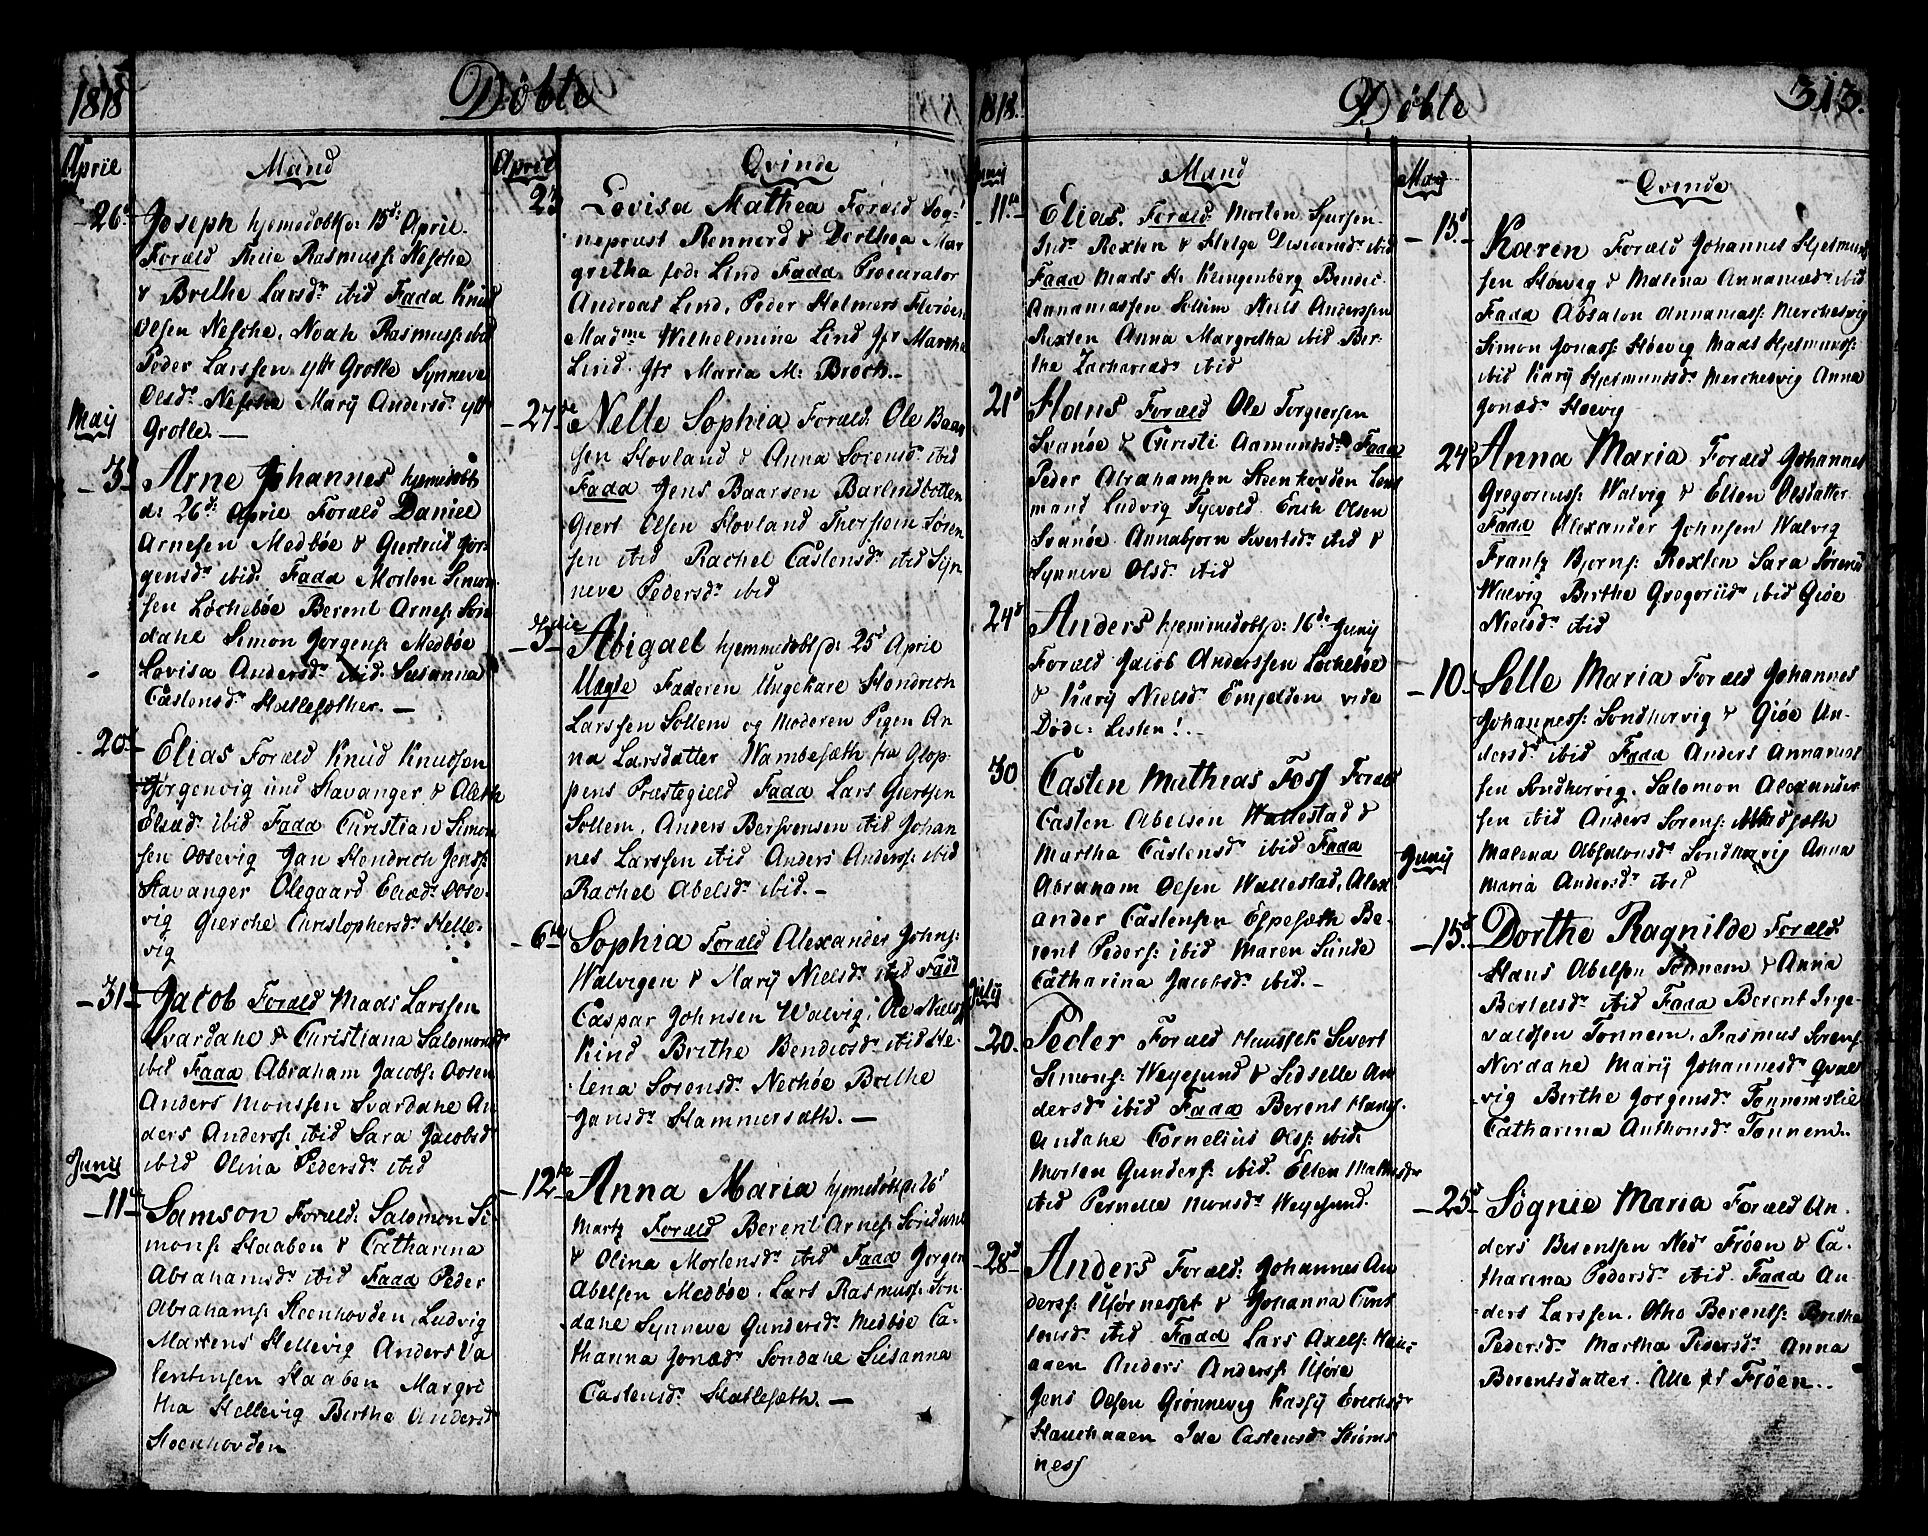 1818
Døbte
April
Mand
26
Joseph hjemedøbt d: 15d: April.
Foræld
Rasmuss: Nesche
& Brithe Larsdr ibid Fadd Knud
Olsen Nesche, Noah Rasmuss: ibid
Peder Larssen ytt Grotle Synneve
Olsdr Nesche Marÿ Andersdr ytt
Grotle.—
Maÿ
3d
Arne Johannes hjemedøbt
d: 26d: Aprie Foræld Daniel
Arnesen Medbøe & Giertrud Jør-
gensdr ibid: Fadd Morten Simon
sen Løchebøe Berent Arnes: Søn
dahe Simon Jørgens: Medbøe
Lovisa Andersdr ibid. Susanna
Castensdr Hatlesæther.—
20d
Elias Foræld Knud Knudsen
Jørgenvig und Stavanger & Alethe
Eliædr ibid Fadd Christian Simon
sen Ovsevig Jan Hendrich Jenss:
Stavanger Olegaard Eliædr Ovse-
vig Gierche Christophersdr Helle-
vig
31d
Jacob Foræld Mads Larssen
Svardahe & Christiana Salomonsdr
ibid Fadd Abraham Jacobs: Ovsen
Anders Monssen Svardahe An
ders Anderss: ibid Sara Jacobsdr
ibid Olina Pedersdr ibid
Junÿ
11te
Samson Foræld: Salomon Si-
mons: Staaben & Catharina
Abrahamsdr ibid Fadd Peder
Abrahams: Steenhovden, Ludvig
Martens Hellevig Anders Va
lentinsen Staaben Margre
tha Hellevig Birthe Andersdr
Steenhovden
April
Qvinde
23
Lovisa Mathea Foræld Sog-
neprust Rennord & Dorthea Mar
gretha fød: Lind Fadd. Procurator
Andreas Lind, Peder Helmers Florøen
Madme Wilhelmine Lind Jfr Martha
Lind. Jfr Maria M: Broch.—
27de
Nelle Sophia Foræld: Ole Baar
sen Hovland & Anna Sørensdr ibid
Fadd Jens Baarsen Barlindbotten
Giert Olsen Hovland Thorstein Søren
sen ibid Rachel Castensdr ibid Syn
neve Pedersdr ibid
3d
Abigael hjemmedøbt d: 25d April
Uægte Faderen Ungekare Hendrich
Larssen Sollem og Moderen Pigen An
na Larsdatter Wambesæth fra Glop-
pens Præstegield Fadd Lars Giertsen
Sollem, Anders Bersvensen ibid Johan
nes Larssen ibid Anders Anderss: ibid
Rachel Abelsdr ibid.—
6te
Sophia Forælð Alexander Johns:
Walvigen & Marÿ Nielsdr ibid Fadd
Caspar Johnsen Walvig, Ole Niels:
Kind Brithe Bendixsdr ibid He-
lena Sørensdr Nechøe Brithe
Jansdr Hammersæth.—
12te
Anna Maria hjemedøbt d: 26d
Martz Forælð Berent Arnes: Sønd
& Olina Mortensdr ibid Fadd Jørgen
Abelsen Medbøe. Lars Rasmuss: Søn-
dahe Synneve Gundersdr Medbøe Ca-
tharina Jonædr Søndahe Susanna
Castensdr Hatlesæth.—
1818.
Døbte
313.
Junÿ
Mand
11te
Elias. Foræld: Morten Siursen
Ind: Rexten & Helge Disciriædr ibid
Fadd Mads H: Klingenberg Bendic
Annaniassen Sollim Niels Anderssen
Rexten Anna Margretha ibid Bir-
the Zachariædr ibid
21d
Hans Foræld Ole Torgiersen
Svanøe & Christi Aamundsdr Fadd
Peder Abrahamsen Steenhovden Lent
mand Ludvig Tycvold. Erich Olsen
Svanøe Annabjorn Sivertsdr ibid &
Synneve Olsdr ibid
24d
Anders hjemmedøbt d: 16de Junÿ
Forælð Jacob Anderssen Løchebøe
& Karÿ Nielsdr Empelsen vide
Døde: Listen!.
30
Casten Mathias Foss Foræld
Casten Abelsen Wallestad &
Martha Castensdr ibid Fadd
Abraham Olsen Wallestad, Alex-
ander Castensen Espesæth Be-
rent Peders: ibid Maren Sunde
Catharina Jacobsdr ibid.—
Julÿ
20.
Peder Foræld Huussek Sivert
Simons: Weyesund & Sidselle An
dersdr ibid Fadd Berent Hans:
Andahe Cornelius Olss: ibid:
Morten Gunders: ibid. Ellen Mathisdr
ibid Pernelle Monsdr Weyesund.
28d
Anders Foræld: Johannes An
derss: Ufornesset & Johanna Cast
tensdr ibid Fadd Lars Axels: Hau-
aaen Anders Anderss: Uføre
Jens Olsen Grønnevig Kassÿ Erichsdr
Hauchaaen Ida Castensdr Strøms
ness
Maÿ
Qvinde
15d
Karen Foræld Johannes Hjelmund
sen Høevig & Malena Annaniædr ibid
Fadd Absalon Annanias: Merchesvig
Simon Jonass: Høevig Mads Hjelmunds:
ibid Karÿ Hjelmundsdr Merchesvig Anna
Jonædr Høevig
24
Anna Maria Foræld Johannes
Gregoriuss: Walvig & Ellen Olsdatter
Fadd Alexander Johnsen Walvig
Frantz Bjorns: Rexten Sara Sørensdr
Walvig Birthe Gregoriidr ibid Giøe
Nielsdr ibid
10.
Selle Maria Foræld Johannes
Johanness: Sondhorvig & Giøe An-
dersdr ibid Fadd Anders Annanias
sen Sondhorvig. Salomon Alexander
sen ibid Anders Sørens:
Malena Absalonsdr Sondhorvig Anna
Maria Andersdr ibid
Junÿ
15d
Dorthe Ragnilde Foræld:
Hans Abelsen Tonnem & Anna
Bertelsdr ibid Fadd Berent Inge-
valdsen Tonnem, Rasmus Sørens:
Nordahe Marÿ Johannesdr Qvae
vig Birthe Jørgensdr Tonnemslie
Catharina Anthonsdr Tonnem..
25d
Søgnie Maria Foræld An-
ders Berentsen Ned Frøen & Ca-
tharina Pedersdr ibid. Fadd An-
ders Larssen. Otho Berents: Brithe
Pedersdr Martha Pedersdr Anna
Berentsdatter. Alle pt Frøen..